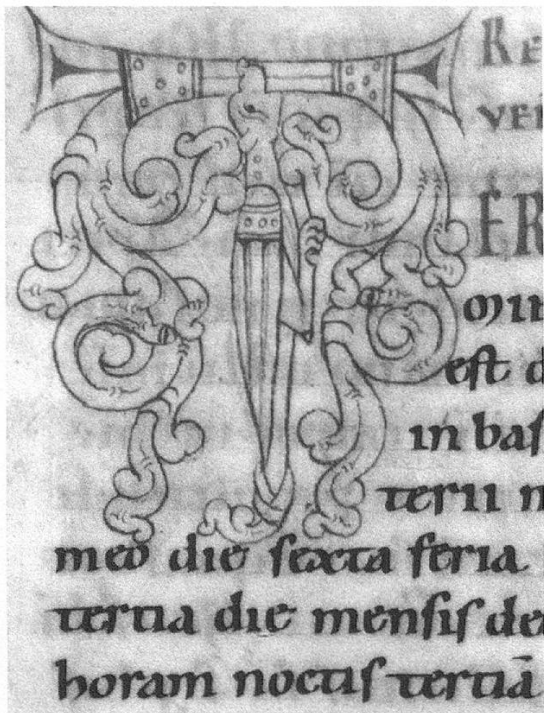 RE
VE
ER
MIN
est d
in bas
terii m
meo die sexta feria
tertia die mensis de
horam noctis tertiā